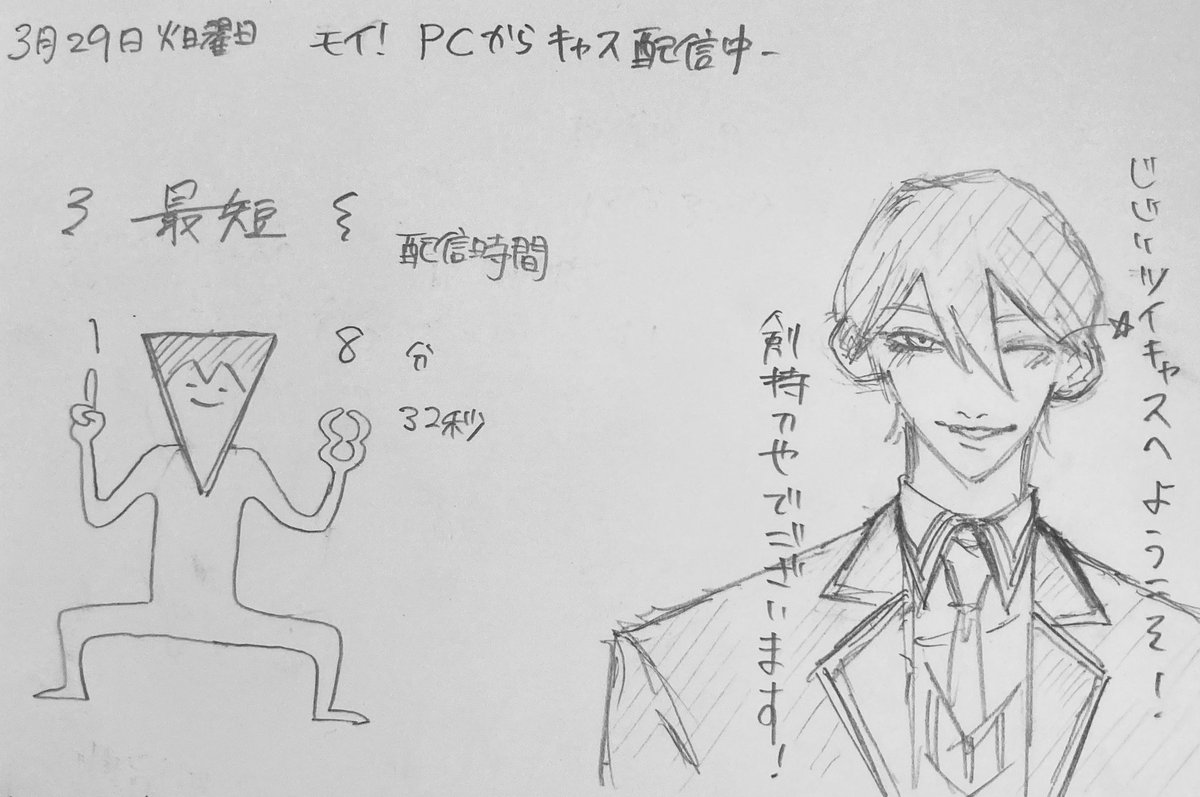 3月29日 火曜日 モイ! PCからキャス配信中-
最短
配信時間
1
8分
32秒
じじいツイキャスへようこそ!
剣持刀やでございます!